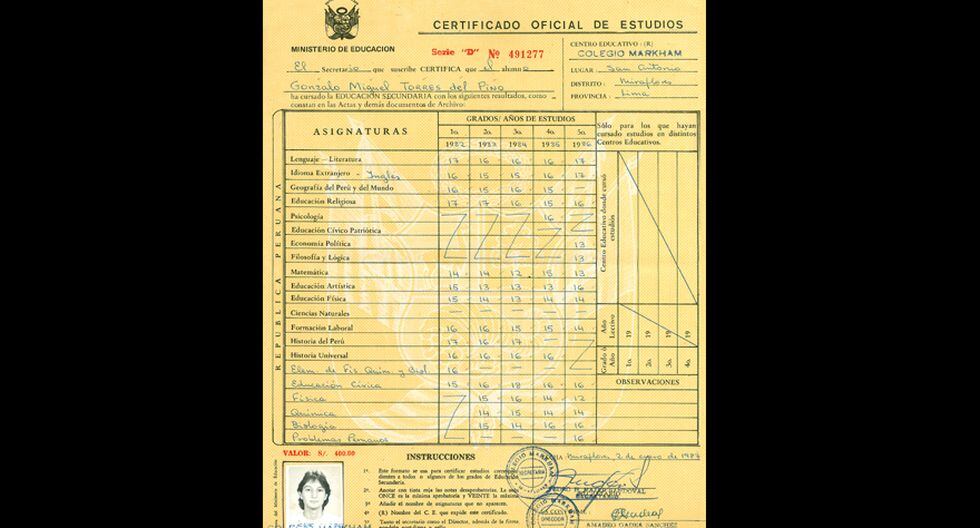 CERTIFICADO OFICIAL DE ESTUDIOS
MINISTERIO DE EDUCACION
Serie "D" Nº 491277
CENTRO EDUCATIVO: (R)
COLEGIO MARKHAM
LUGAR: San Antonio
DISTRITO: Miraflores
PROVINCIA: Lima
El Secretario que suscribe CERTIFICA que el alumno
Gonzalo Miguel TORRES del Pino
ha cursado la EDUCACIÓN SECUNDARIA con los siguientes resultados, como
constan en las Actas y demás documentos de Archivo:
REPUBLICA PERUANA
ASIGNATURAS
GRADOS/ AÑOS DE ESTUDIOS
1o. 2o. 3o. 4o. 5o.
1982 1983 1984 1985 1986
Sólo para los que hayan
cursado estudios en distintos
Centros Educativos.
Lenguaje - Literatura 17 16 16 16 17
Idioma Extranjero - Ingles 16 15 15 16 17
Geografía del Perú y del Mundo 16 15 16 15 -
Educación Religiosa 17 17 16 15 16
Psicología 16
Educación Cívico Patriótica
Economía Política 13
Filosofía y Lógica 13
Matemática 14 14 12 15 13
Educación Artística 15 13 13 13 16
Educación Física 15 14 13 14 14
Ciencias Naturales - - - - -
Formación Laboral 16 16 15 15 14
Historia del Perú 17 16 17 -
Historia Universal 16 16 16 16
Elem. de Fis. Quim. y Biol. 16 - - -
Educación Cívica 15 16 18 16 16
Física 15 16 14 12
Química 14 15 14 14
Biología 15 14 16 16
Problemas Peruanos - - - 16
Centro Educativo donde cursó
estudios
Año
Lectivo
19 19 19 19
Grado o
Año
1o. 2o. 3o. 4o.
OBSERVACIONES
VALOR: S/. 400.00
INSTRUCCIONES
Miraflores, 2 de enero de 1987
1ª. Este formato se usa para certificar estudios
dientes a todos o algunos de los grados de Educación
Secundaria.
2ª. Anotar con tinta roja las notas desaprobatorias. La nota
ONCE es la mínima aprobatoria y VEINTE la máxima.
3ª. Añadir el nombre de asignaturas que no aparecen.
4ª. (R) Nombre del C. E. que expide este certificado.
5ª. Tanto el secretario como el Director, además de la firma
COLEGIO MARKHAM
SECRETARIA
DIRECCION